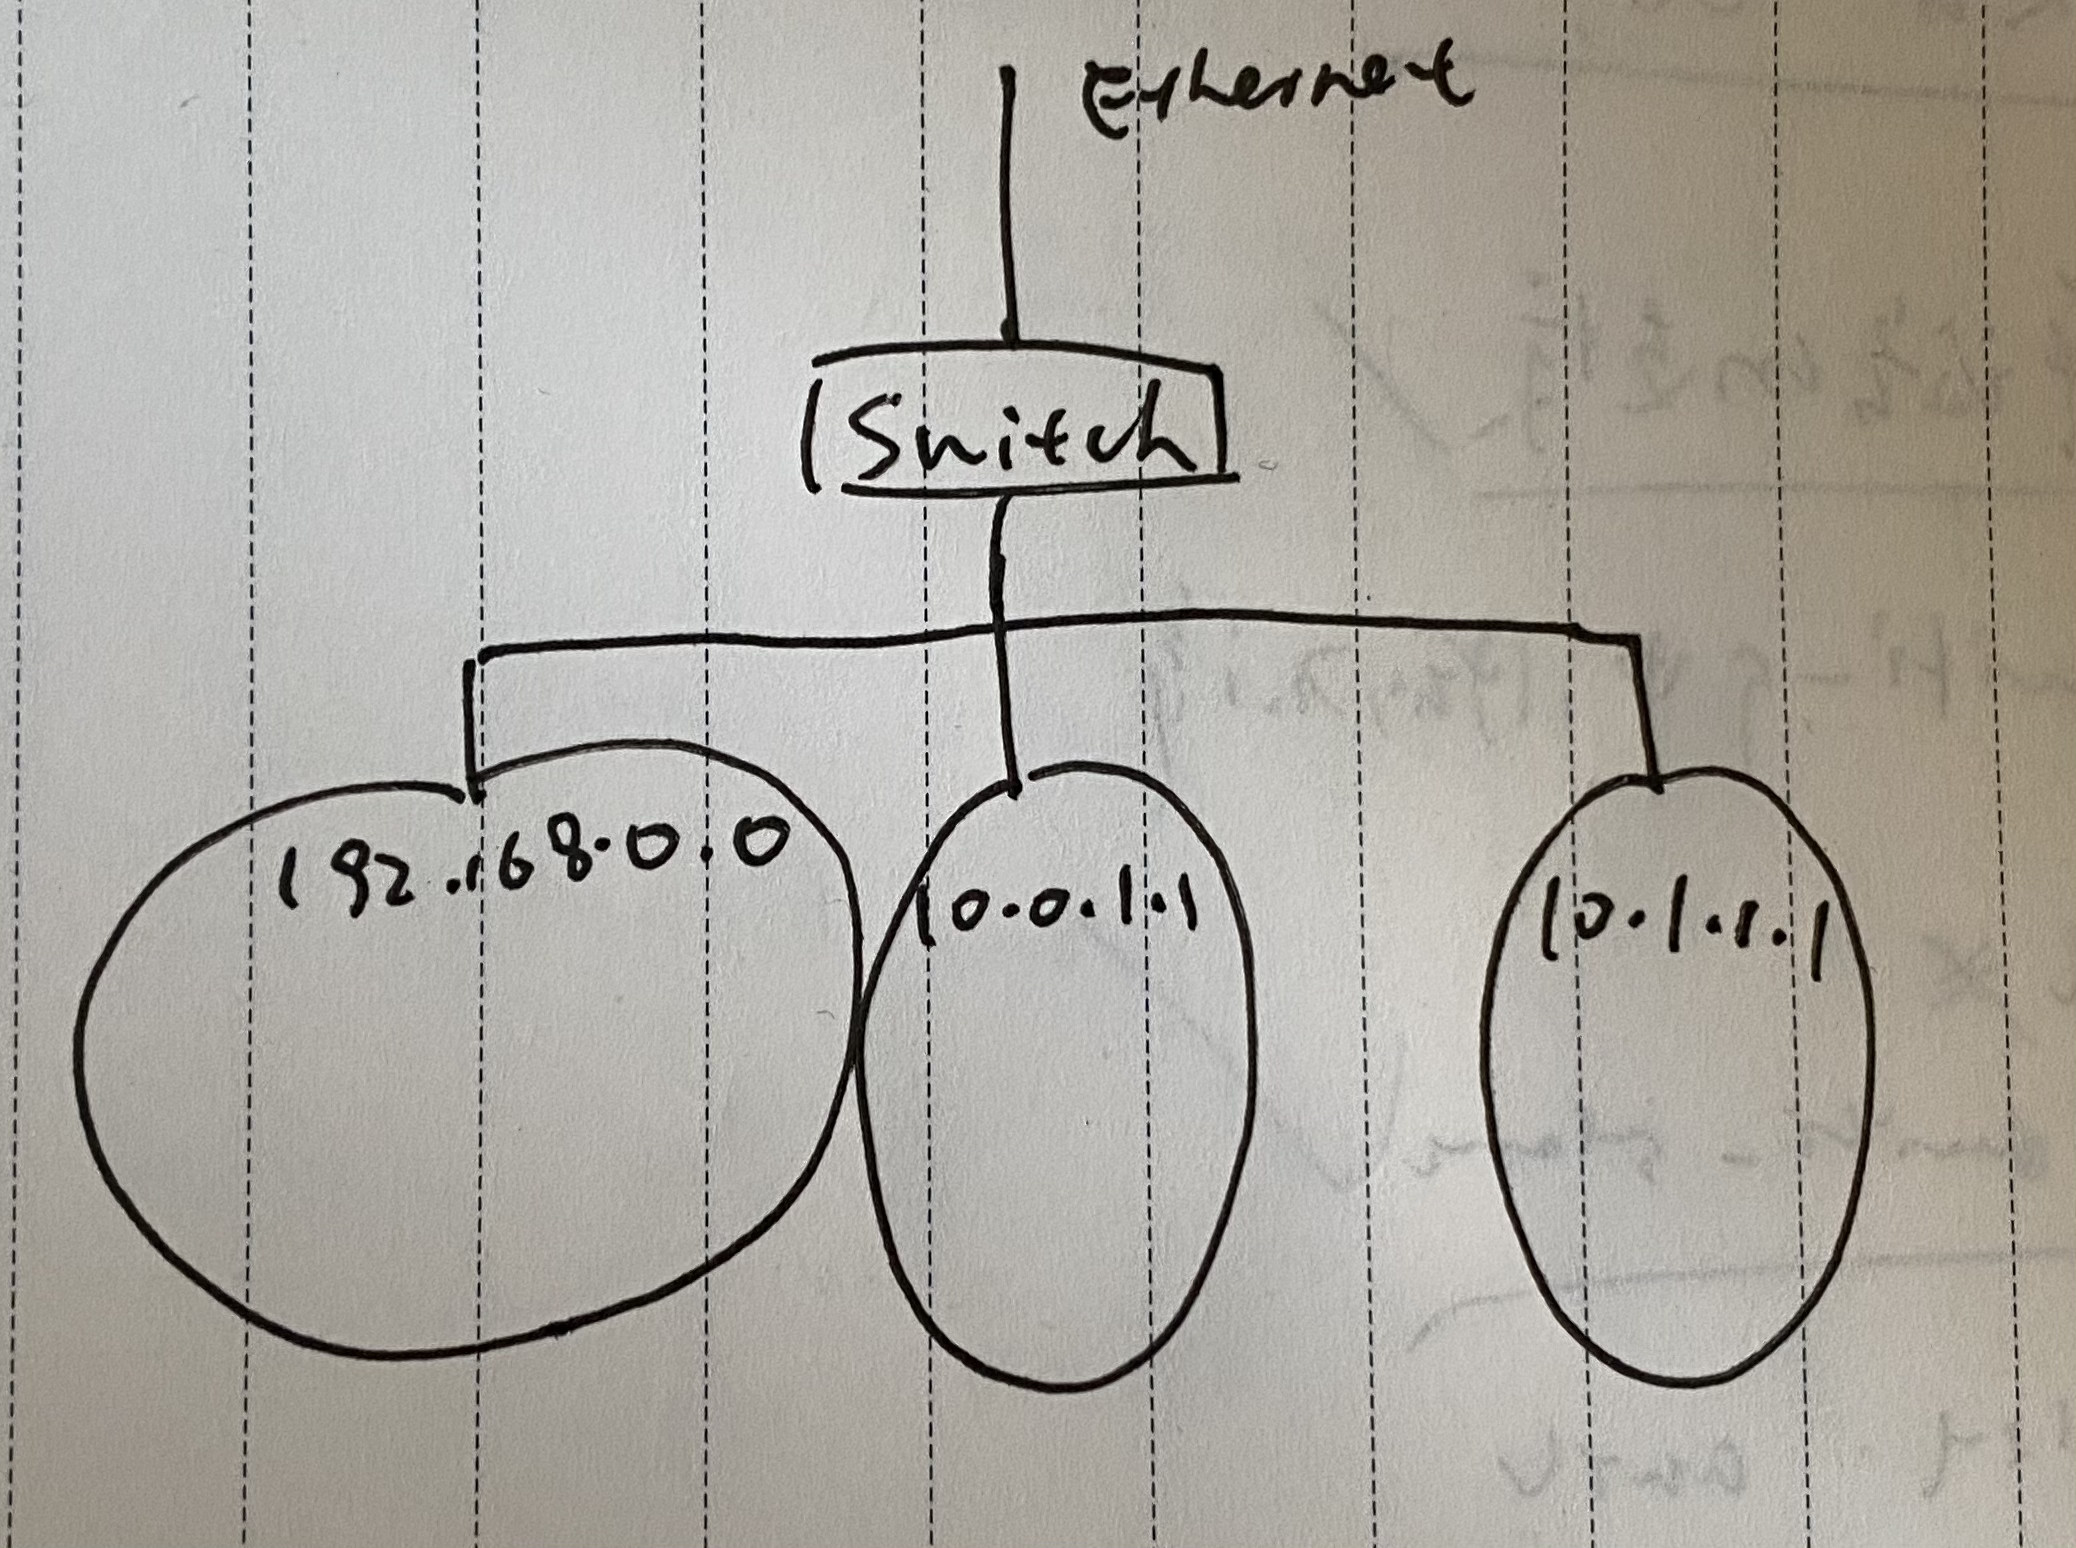 Ethernet
Switch
192.168.0.0
10.0.1.1
10.1.1.1